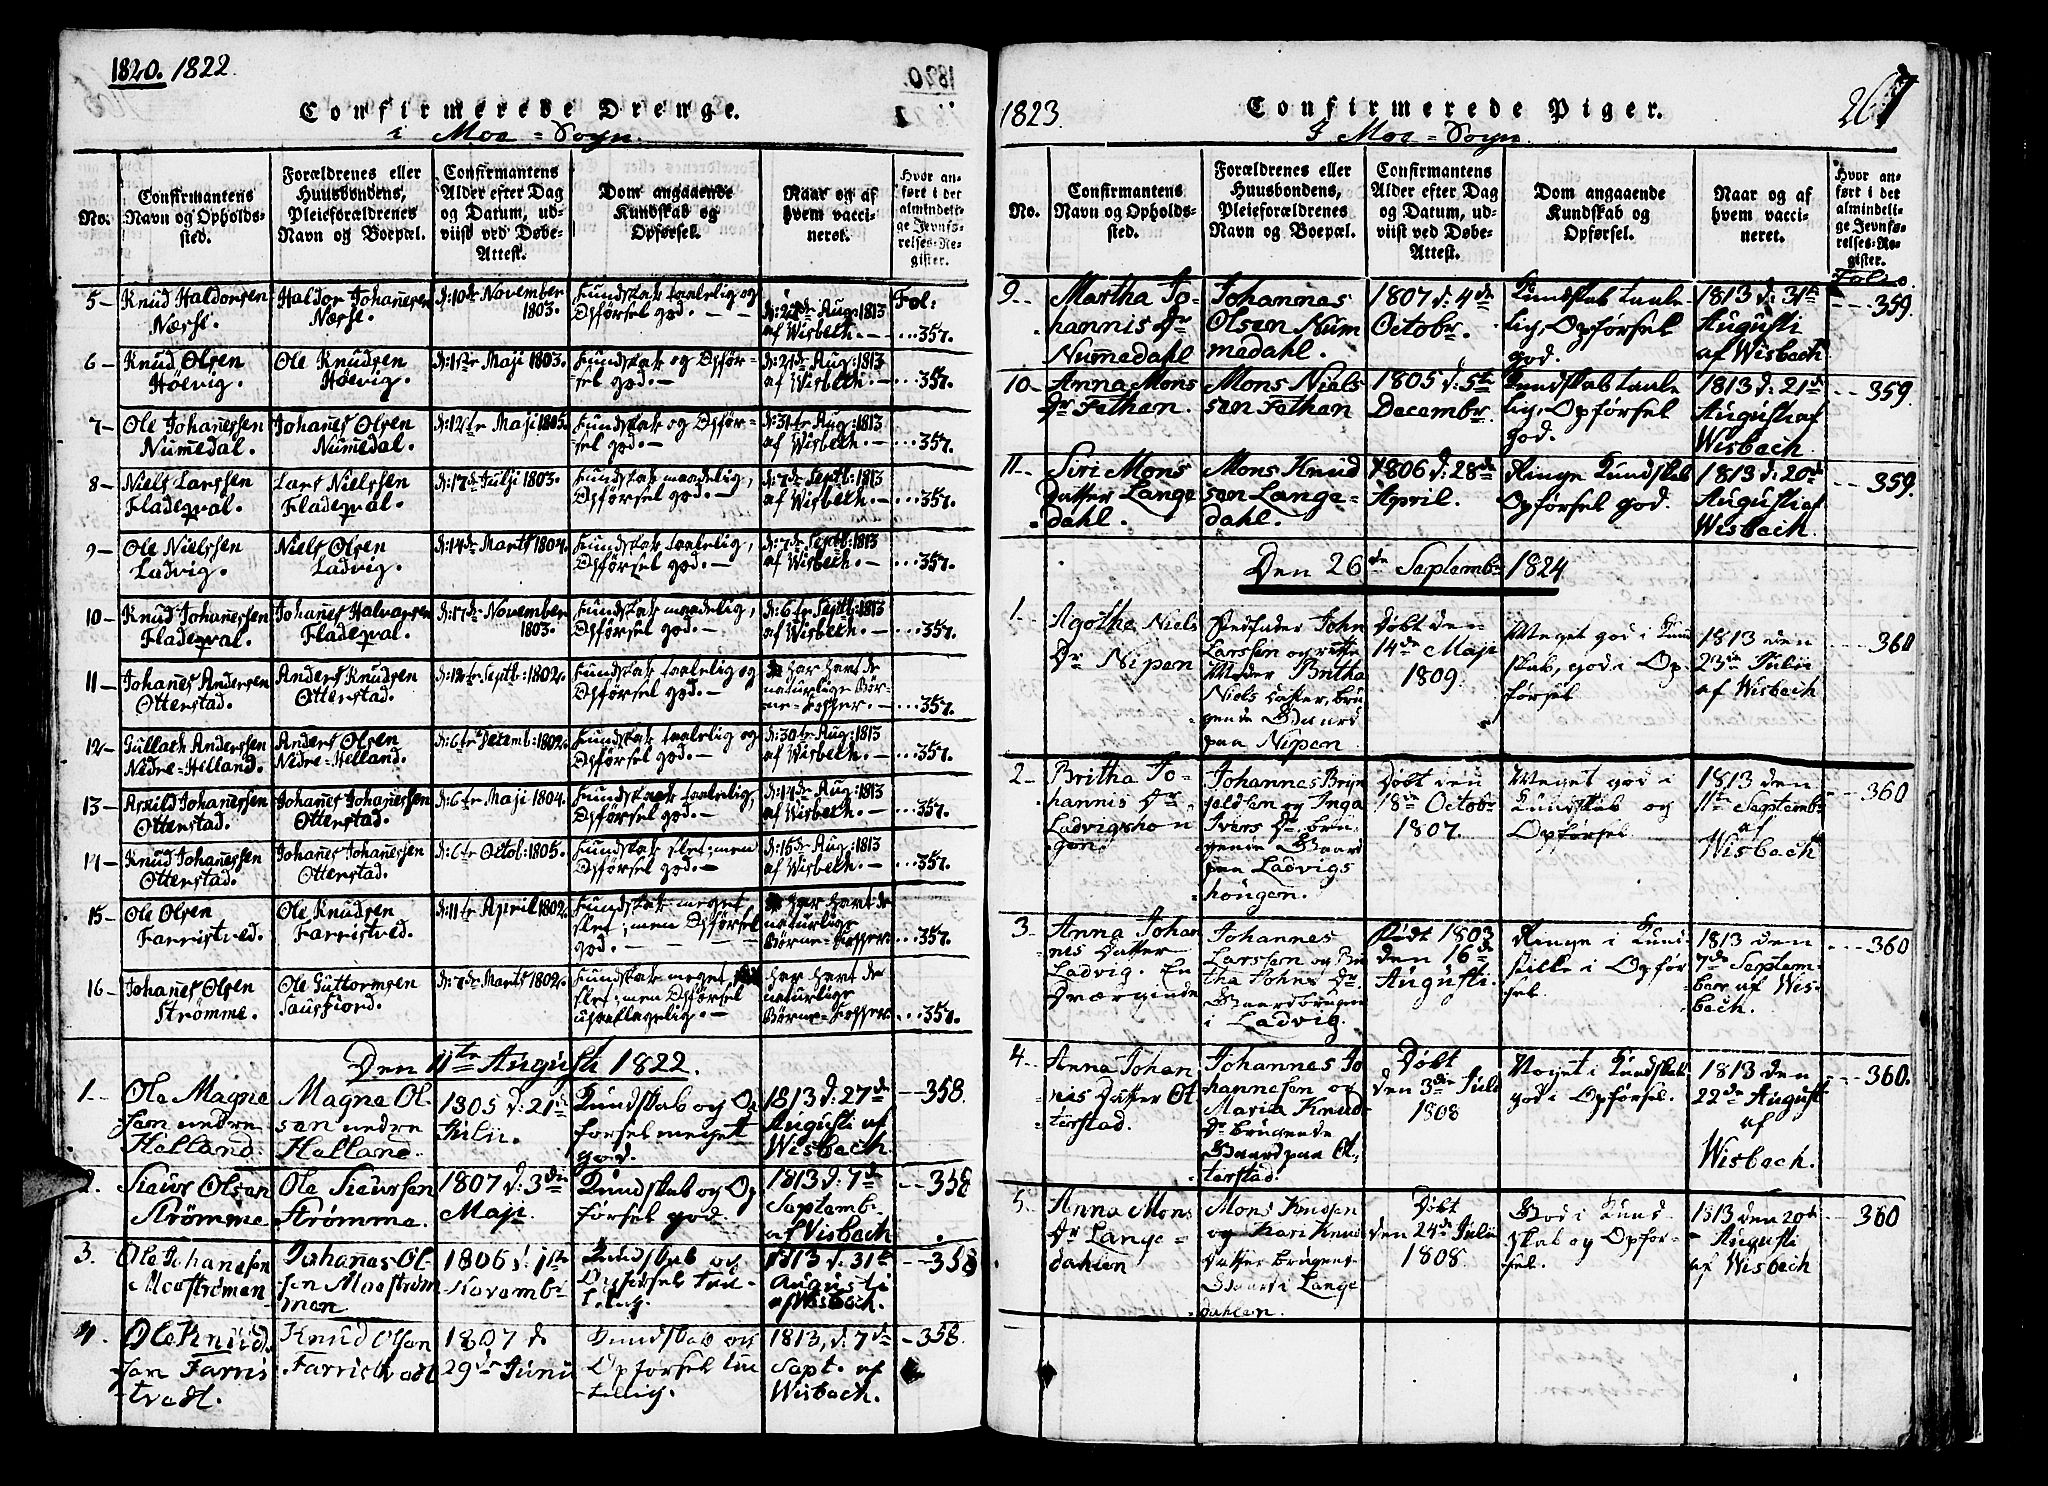 1820. 1822.
Confirmerede Drenge.
i Moe=Sogn.
No.
Confirmantens Navn og Opholds-sted.
Forældrenes eller Huusbondens, Pleieforældrenes Navn og Boepæl.
Confirmantens Alder efter Dag og Datum, ud-viist ved Døbe-Attest.
Dom angaaende Kundskab og Opførsel.
Naar og af hvem vacci-neret.
Hvor an-ført i det almindeli-ge Jevnfø-relses-Re-gister.
5 - Knud Haldorsen Næsse.
Haldor Johanesen Næsse.
d: 10de November 1803.
Kundskab taalelig og Opførsel god.
d: 21de Aug: 1813 af Wisbech.
Fol: 357.
6 - Knud Olsen Høevig.
Ole Knudsen Høevig.
d: 1ste Maji 1803.
Kundskab og Opfør-sel god.
d: 21de Aug: 1813 af Wisbech.
357.
7 - Ole Johanessen Numedal.
Johanes Olsen Numedal.
d: 12te Maji 1805.
Kundskab og Opfør-sel god.
d: 31te Aug: 1813 af Wisbech.
357.
8 - Niels Larssen Fladeqval.
Lars Nielssen Fladeqval.
d: 17de Julji 1803.
Kundskab maadelig, Opførsel god.
d: 7de Septb: 1813 af Wisbech.
357.
9 - Ole Nielssen Ladvig.
Niels Olsen Ladvig.
d: 14de Marts 1804.
Kundskab taalelig, Opførsel god.
d: 7de Septb: 1813 af Wisbech.
357.
10 - Knud Johanessen Fladeqval.
Johanes Halvorsen Fladeqval.
d: 17de November 1803.
Kundskab maadelig, Opførsel god.
d: 6te Septb: 1813 af Wisbech.
357.
11 - Johanes Andersen Otterstad.
Anders Knudsen Otterstad.
d: 12te Septb: 1802.
Kundskab taalelig og Opførsel god.
har havt de naturlige Bør-ne-Kopper.
357.
12 - Gullach Anderssen Nedre=Helland.
Anders Olsen Nedre=Helland.
d: 6te Decemb: 1802.
Kundskab taalelig og Opførsel god.
d: 30te Aug: 1813 af Wisbech.
357.
13 - Arnild Johanessen Otterstad.
Johanes Johanessen Otterstad.
d: 6te Maji 1804.
Kundskab taalelig, Opførsel god.
d: 17de Aug: 1813 af Wisbech.
357.
14 - Knud Johanessen Otterstad.
Johanes Johanessen Otterstad.
d: 6te Octob: 1805.
Kundskab slet; men Opførsel god.
d: 15de Aug: 1813 af Wisbech.
357.
15 - Ole Olsen Farristved.
Ole Knudsen Farristved.
d: 11te April 1802.
Kundskab meget slet; men Opførsel god.
har havt de naturlige Børne-Kopper.
357.
16 - Johanes Olsen Strømme.
Ole Guttormsen
d: 7de Marts 1802.
Kundskab meget slet; men Opførsel upaaklagelig.
har havt de naturlige Børne-Kopper.
357.
Den 11te Augusti 1822.
1. Ole Magne sen nedre Helland.
Magne Ol-sen nedre Helland.
1805 d: 21de Julii.
Kundskab og Op førsel meget god.
1813 d: 27de Augusti af Wisbech
358.
2. Siver Olsen Strømme
Ole Siversen Strømme.
1807 d: 3die Maji
Kundskab og Op førsel god
1813 d: 7de Septemb: af Wisbech
358
3. Ole Johanesen Moestrømen
Johanes Ol-sen Moestrøm men
1806 d: 1ste Novemb:
Kundskab og Opførsel taa-lelig.
1813 d: 31te Augusti af Wisbach.
358
4. Ole Knud sen Farris tvedt.
Knud Olsen Farristvedt
1807 d. 29de Junii
Kundskab og Opførsel taa lelig.
1813, d: 7de Sept. af Wisbech.
358.
1823.
Confirmerede Piger.
I Moe=Sogn.
267
No.
Confirmantens Navn og Opholds-sted.
Forældrenes eller Huusbondens, Pleieforældrenes Navn og Boepæl.
Confirmantens Alder efter Dag og Datum, ud-viist ved Døbe-Attest.
Dom angaaende Kundskab og Opførsel.
Naar og af hvem vacci-neret.
Hvor an-ført i det almindeli-ge Jevnfø-relses-Re-gister.
Folio.
9. Martha Jo-hannis Dr Numedahl
Johannes Olsen Num medahl.
1807 d: 4de Octobr.
Kundskab taale lig, Opførsel god.
1813 d: 31te Augusti af Wisbach
359.
10. Anna Mons Dr Fethan.
Mons Niels sen Fethan
1805 d: 5te Decembr.
Kundskab taale lig, Opførsel god.
1813 d: 21de Augusti af Wisbach
359.
11. Siri Mons datter Lange dahl.
Mons Knud sen Lange-dahl.
1806 d: 28de April.
Ringe Kundskab Opførsel god.
1813 d: 20de Augusti af Wisbach
359.
Den 26de Septembr 1824
1. Agothe Niels Dr Nipen
Stedfader John Larssen og rette Moder Britha Niels datter, bru gende Gaard paa Nipen
Døbt den 14de Maji 1809.
Meget god i Kund skab, god i Op-førsel
1813 den 23de Julii af Wisbach
360
2. Britha Jo-hannis Dr Ladvigshou gen
Johannes Bryn jeldsen og Inga Ivers Dr. bru-gende Gaard paa Ladvigs hougen.
Døbt den 18de Octobr 1807.
Meget god i Kundskab og Opførsel
1813 den 11te Septembr af Wisbach
360
3. Anna Johan nis datter Ladvig. En Dværginde
Johannes Larssen og Bri tha Johns Dr. Gaardbrugen i Ladvig.
Født 1803 den 16de Augusti.
Ringe i Kund-skab i Opfør sel.
1813 den 7de Septem-ber af Wis-bach.
360
4. Anna Johan nis datter Ot terstad.
Johannes Jo hannesen og Maria Knuds Dr brugende Gaard paa Ot-terstad.
Døbt den 3die Julii 1808
Meget i Kundskab god i Opførsel.
1813 den 22de August af Wisbach.
360.
5. Anna Mons Dr Lange=dahlen
Mons Knudsen og Kari Knud datter brugende Gaard i Lange dahlen.
Døbt den 24de Julii 1808.
God i Kund-skab og Opfør-sel.
1813 den 20de Augusti af Wisbach
360